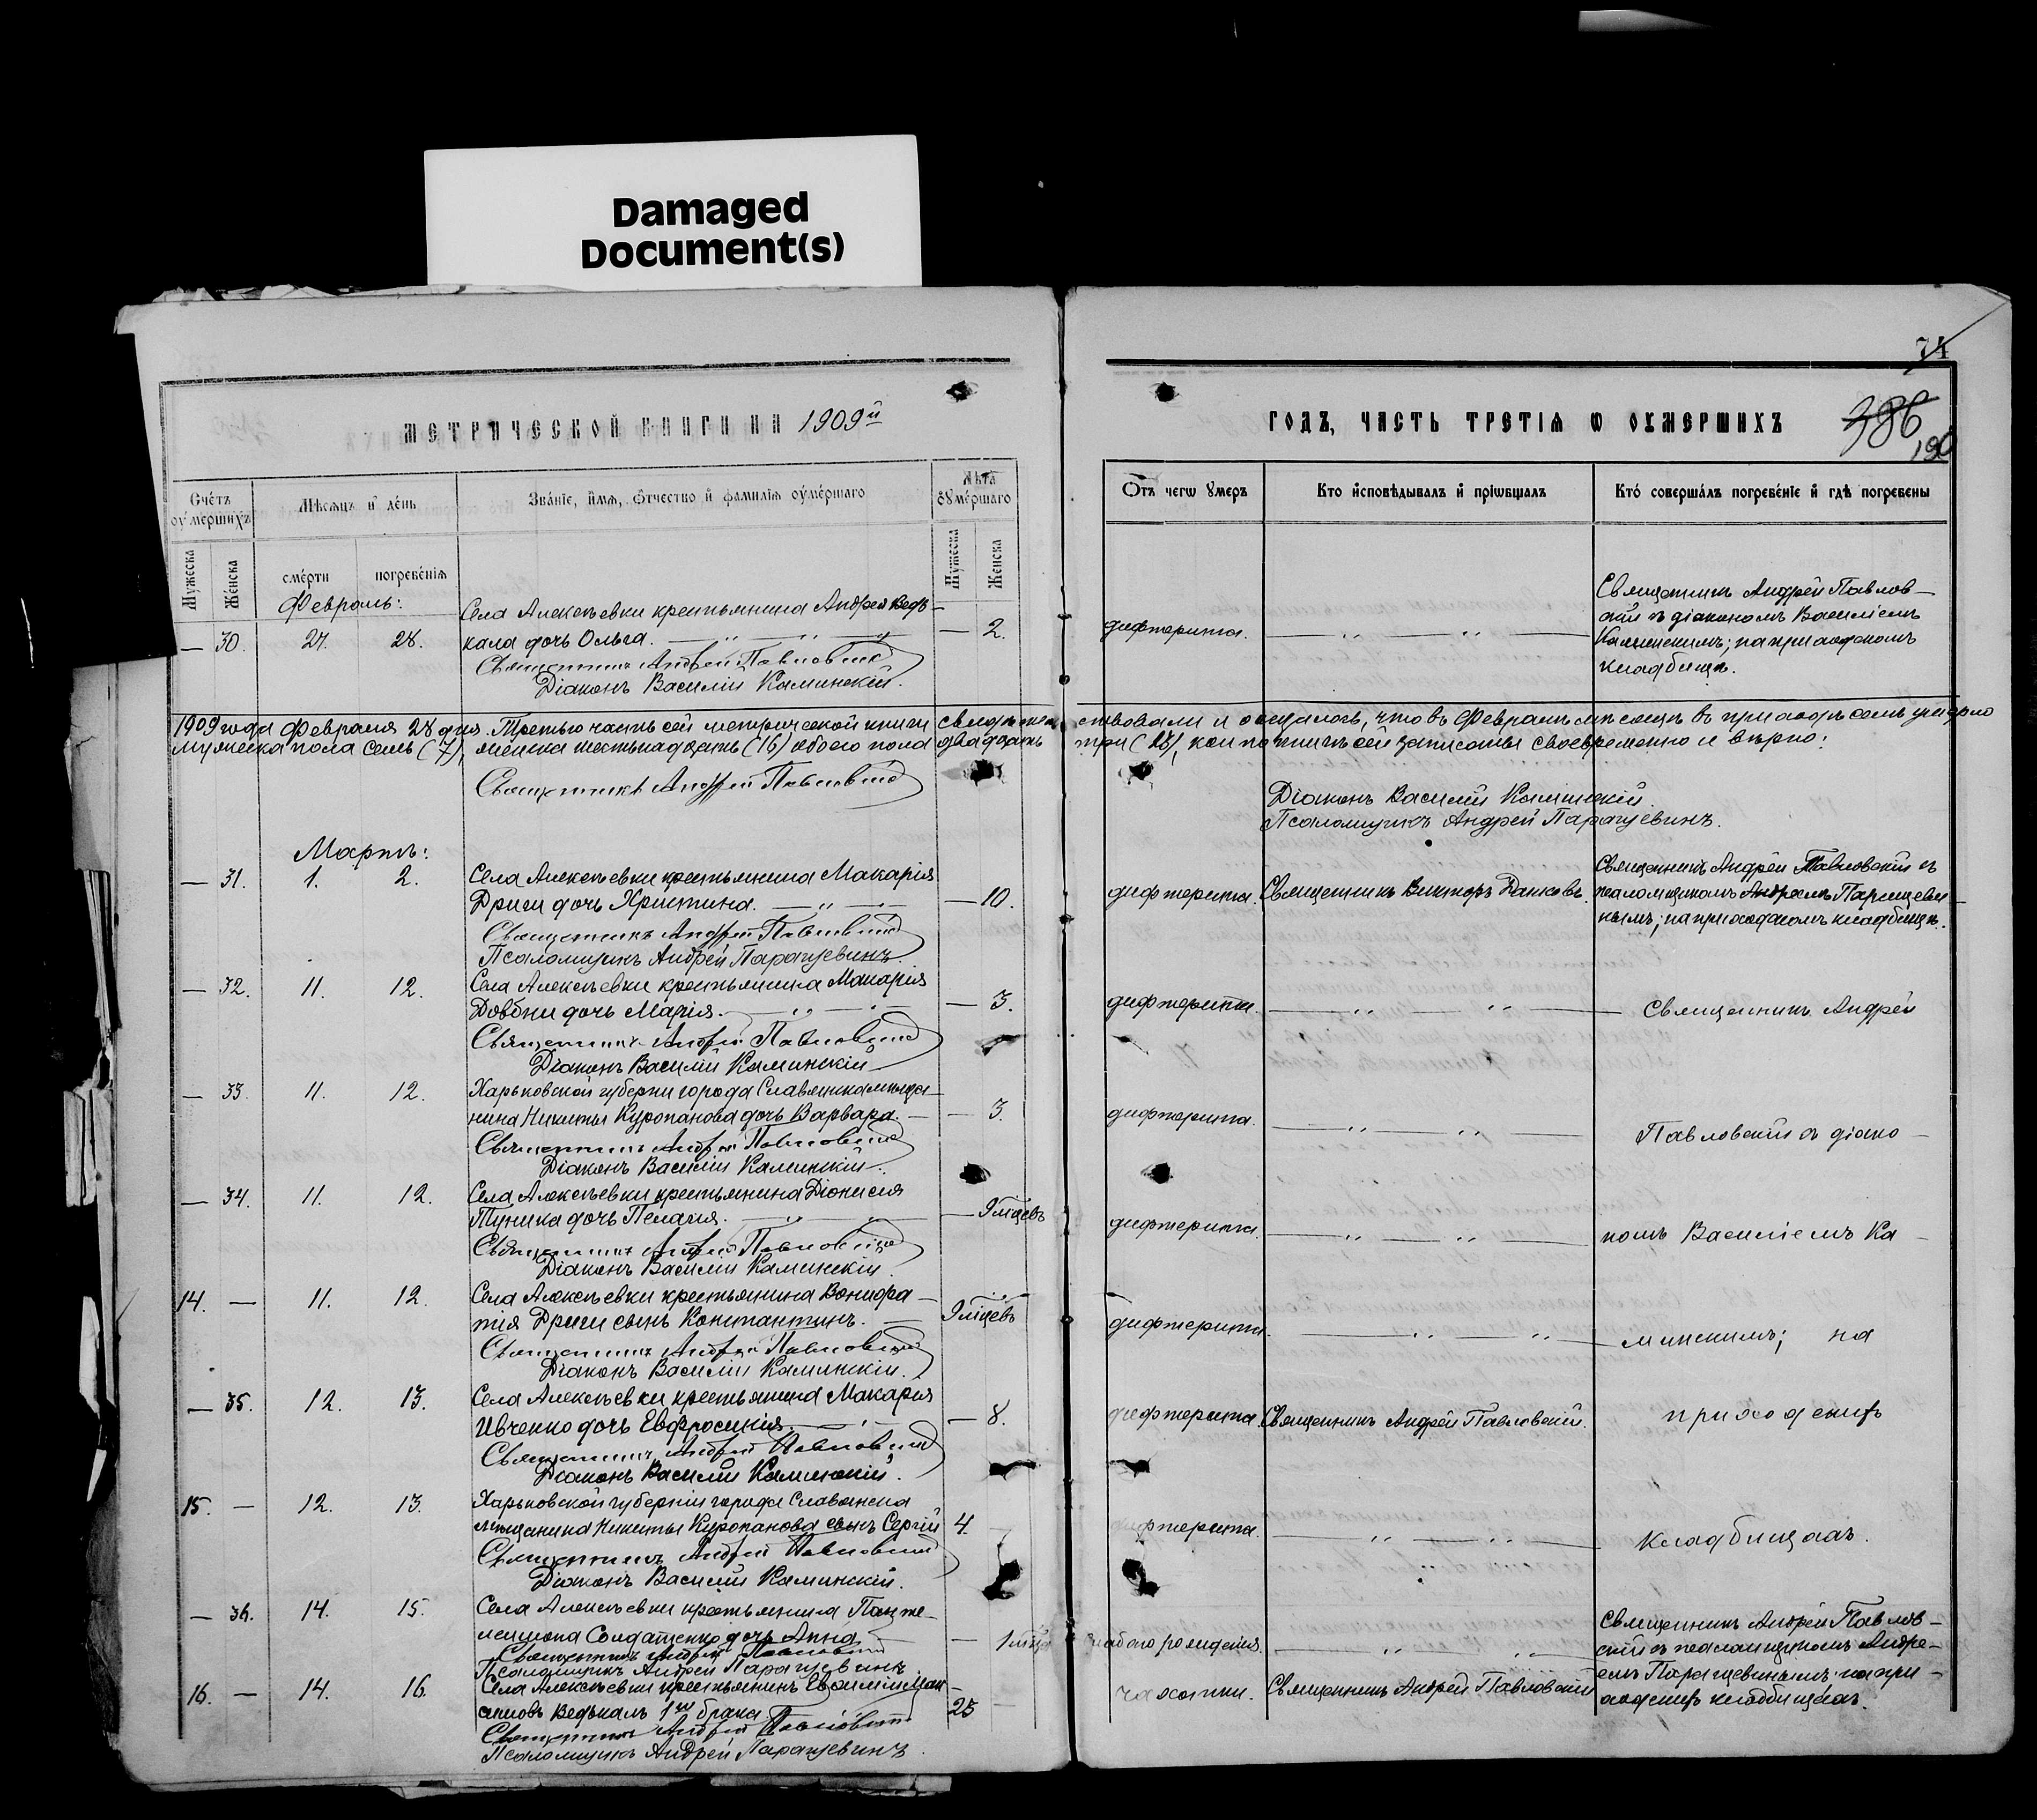 Damaged
Document(s)
74
МЕТРИЧЕСКОЙ КНИГИ НА 1909й
ГОДЪ, ЧАСТЬ ТРЕТІЯ Ѿ ОУМЕРШИХЪ
386
190
Счетъ оумершихъ
Мѣсяцъ и день
Званіе, имя, отчество и фамилія оумершаго
Лѣта оумершаго
Отъ чегѡ умеръ
Кто исповѣдывалъ и пріѡбщалъ
Кто совершалъ погребеніе и гдѣ погребены
Мужеска
Женска
смерти
погребенія
Мужеска
Женска
Февраль:
Села Алексѣевки крестьянина Андрея Ведь-
— 30. 27. 28. кала дочь Ольга. — 2. дифтерита.
Священникъ Андрей Павловскій
Діаконъ Василій Каминскій.
Священникъ Андрей Павлов-
скій съ діакономъ Василіемъ
Каминскимъ; на приходскомъ
кладбищѣ.
1909 года Февраля 28 дня. Третью часть сей метрической книги свидѣтельствовали и оказалось, что въ Февралѣ мѣсяцѣ въ приходѣ семъ умерло
мужеска пола семь (7), женска шестнадцать (16) обоего пола двадцать три (23), кои по книгѣ сей записаны своевременно и вѣрно:
Священникъ Андрей Павловскій
Діаконъ Василій Каминскій.
Псаломщикъ Андрей Паращевинъ.
Мартъ:
— 31. 1. 2. Села Алексѣевки крестьянина Макарія
Дриги дочь Христина. — 10. дифтерита. Священникъ Викторъ Данковъ.
Священникъ Андрей Павловскій
Псаломщикъ Андрей Паращевинъ.
Священникъ Андрей Павловскій съ
псаломщикомъ Андреемъ Паращеви-
нымъ; на приходскомъ кладбищѣ.
— 32. 11. 12. Села Алексѣевки крестьянина Макарія
Довбни дочь Марія. — 3. дифтерита. Священникъ Андрей
Священникъ Андрей Павловскій
Діаконъ Василій Каминскій
— 33. 11. 12. Харьковской губерни города Славянска мѣща-
нина Никиты Куропанова дочь Варвара. — 3. дифтерита. Павловскій съ діако-
Священникъ Андрей Павловскій
Діаконъ Василій Каминскій.
— 34. 11. 12. Села Алексѣевки крестьянина Діонисія
Туника дочь Пелагія. — 9 мѣцевъ дифтерита. номъ Василіемъ Ка-
Священникъ Андрей Павловскій
Діаконъ Василій Каминскій.
14. — 11. 12. Села Алексѣевки крестьянина Вонифа-
тія Дриги сынъ Константинъ. 9 мѣцевъ дифтерита. минскимъ; на
Священникъ Андрей Павловскій
Діаконъ Василій Каминскій.
— 35. 12. 13. Села Алексѣевки крестьянина Макарія
Ивченко дочь Евфросинія. — 8. дифтерита. Священникъ Андрей Павловскій. приходскихъ
Священникъ Андрей Павловскій
Діаконъ Василій Каминскій.
15. — 12. 13. Харьковской губерніи города Славянска
мѣщанина Никиты Куропанова сынъ Сергій 4. дифтерита. кладбищахъ.
Священникъ Андрей Павловскій
Діаконъ Василій Каминскій.
— 36. 14. 15. Села Алексѣевки крестьянина Панте-
леимона Солдатенко дочь Анна — 1 мѣца слабаго рожденія.
Священникъ Андрей Павловскій
Псаломщикъ Андрей Паращевинъ
Священникъ Андрей Павлов-
скій съ псаломщикомъ Андре-
емъ Паращевинымъ; на при-
ходскихъ кладбищахъ.
16. — 14. 16. Села Алексѣевки крестьянинъ Евѳимій
Ведькалъ 1мъ брака 25 чахотки. Священникъ Андрей Павловскій
Священникъ Андрей Павловскій
Псаломщикъ Андрей Паращевинъ.